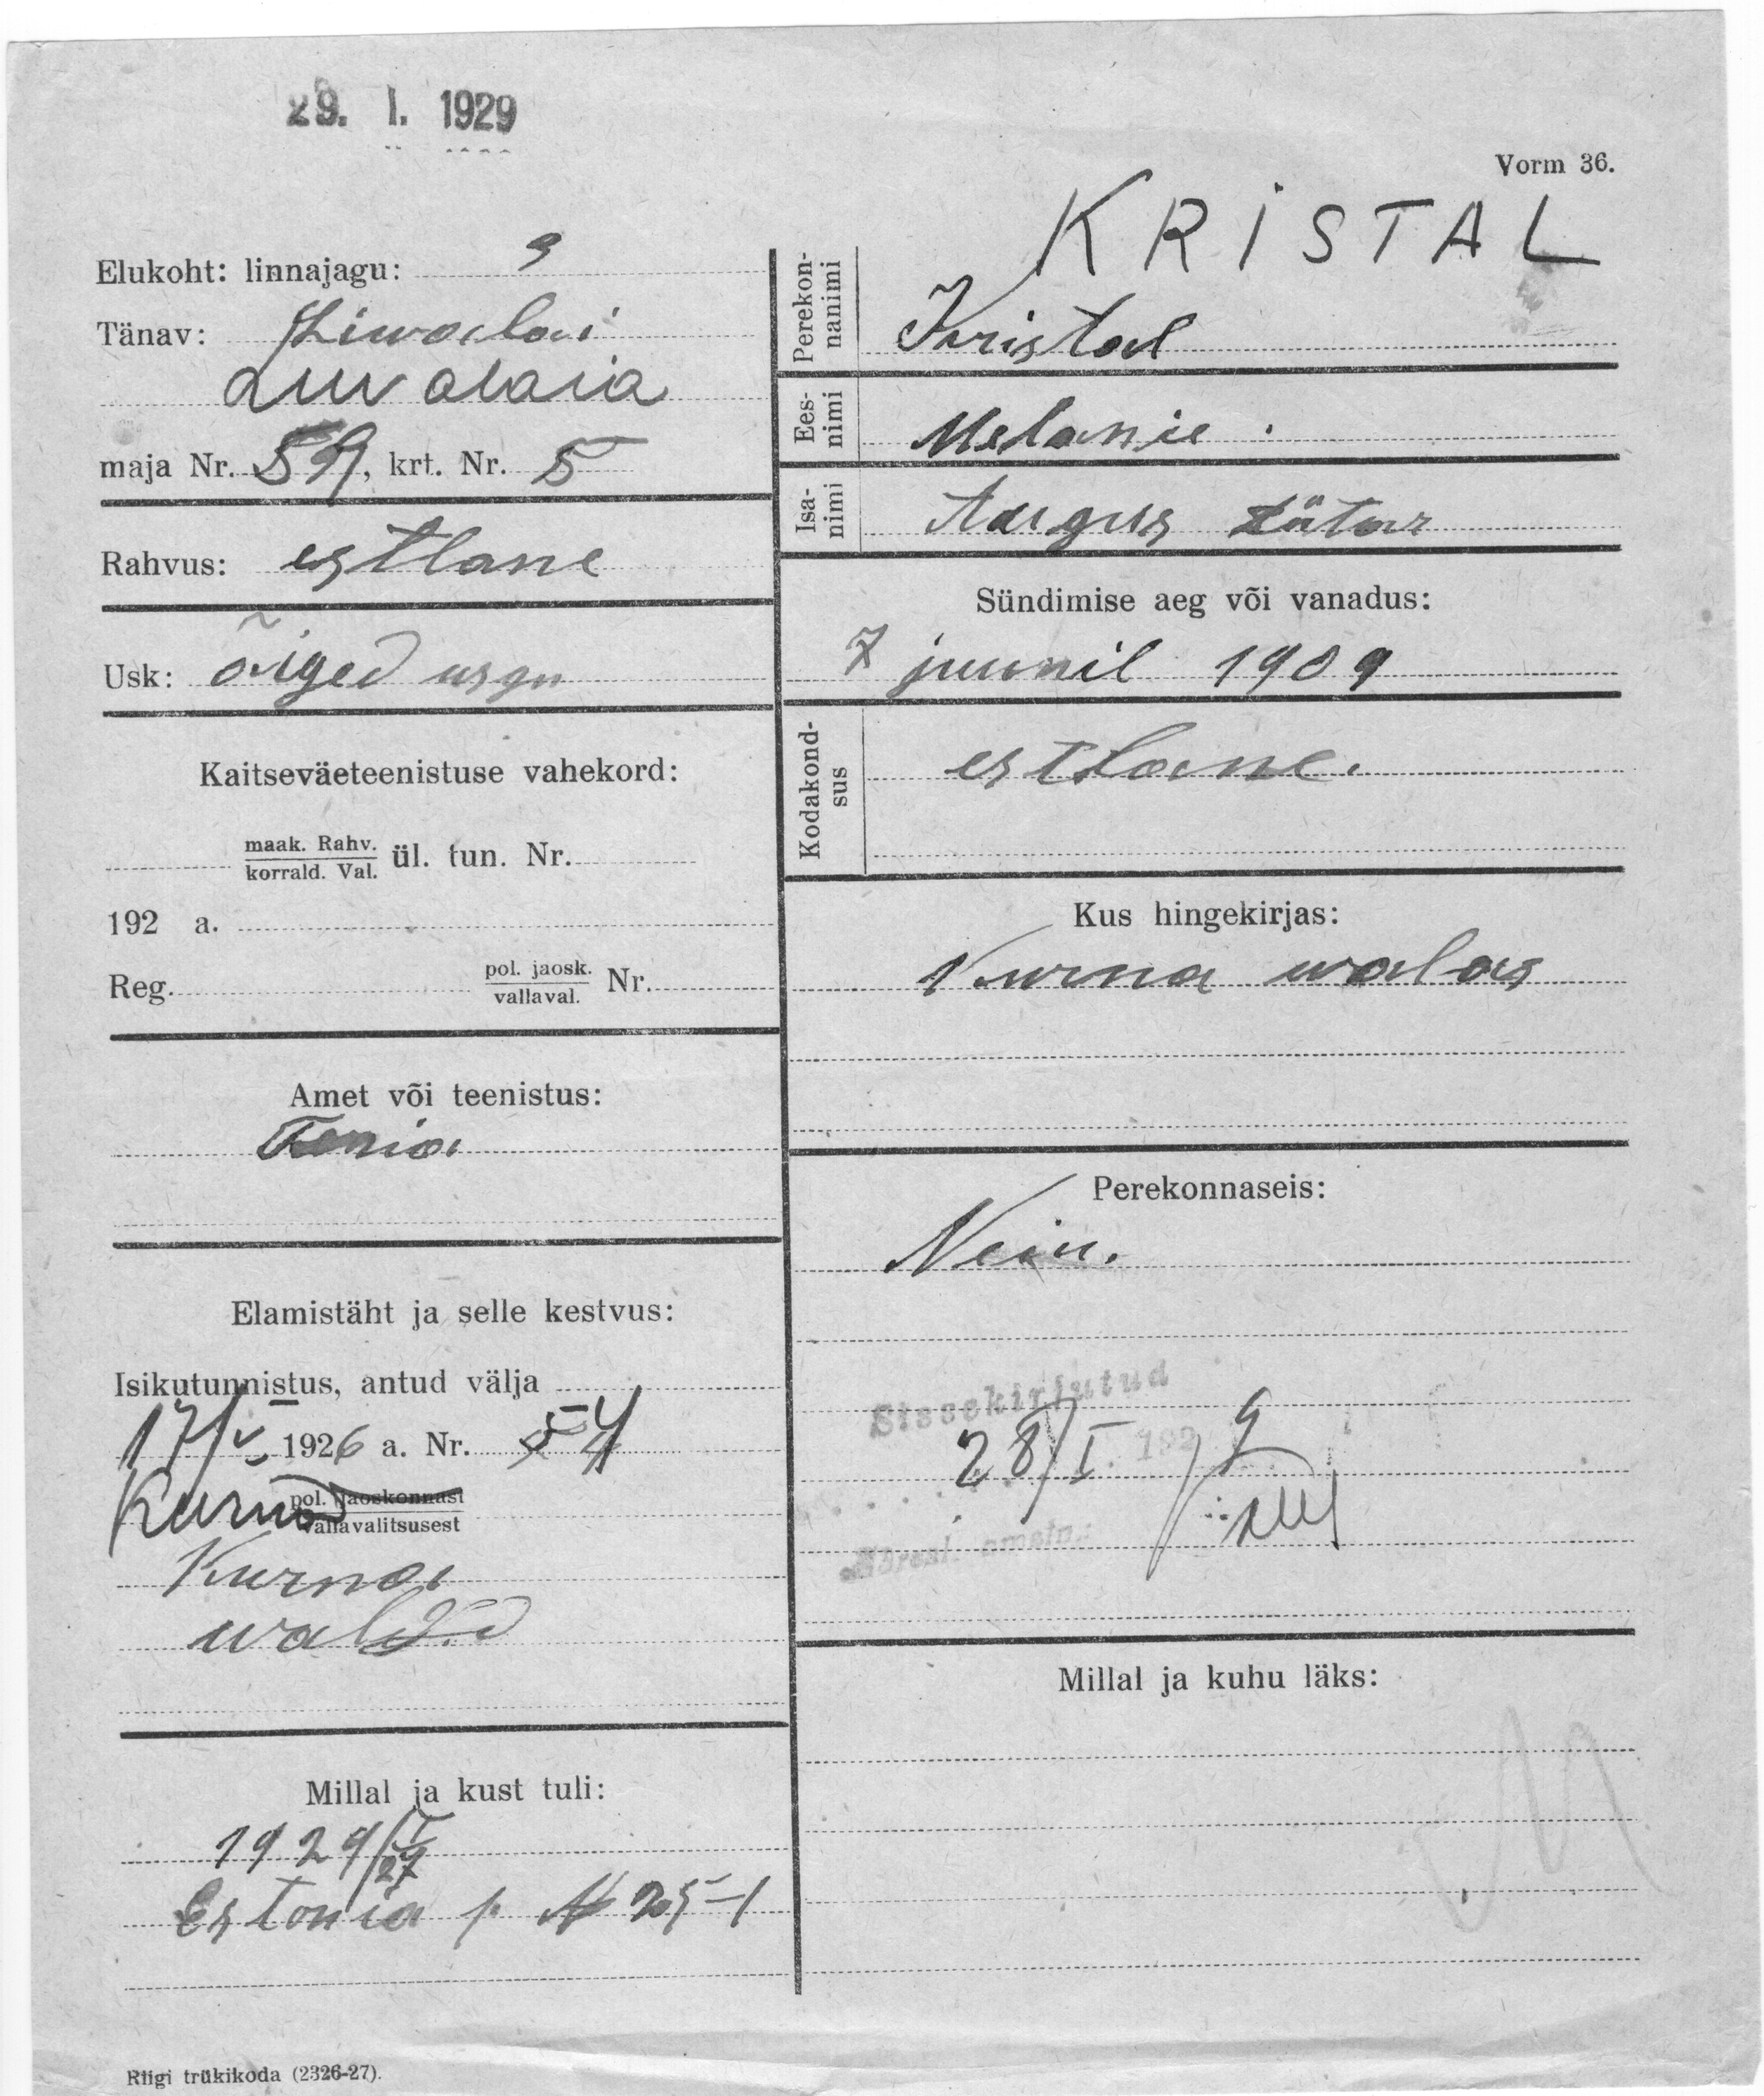 29. I. 1929
Vorm 36.
KRISTAL
Elukoht: linnajagu: 3
Tänav: Liwalai
Liivalaia
maja Nr. 59, krt. Nr. 5
Rahvus: estlane
Usk: õiged usgu
Kaitseväeteenistuse vahekord:
maak. Rahv.
korrald. Val. ül. tun. Nr.
192 a.
Reg. pol. jaosk.
vallaval. Nr.
Amet või teenistus:
Tenia
Elamistäht ja selle kestvus:
Isikutunnistus, antud välja
17/V 1926 a. Nr. 54
Kurna pol. jaoskonnast
vallavalitsusest
Kurna
Millal ja kust tuli:
1929/I
Estonia p. № 25-1
Perekon-
nanimi Kristal
Ees-
nimi Melanie
Isa-
nimi Augus tütar
Sündimise aeg või vanadus:
7 juunil 1909
Kodakond-
sus estlane.
Kus hingekirjas:
Kurna walas
Perekonnaseis:
Nein.
Sissekirjutud
28/I. 1929
Millal ja kuhu läks:
Riigi trükikoda (2326-27).